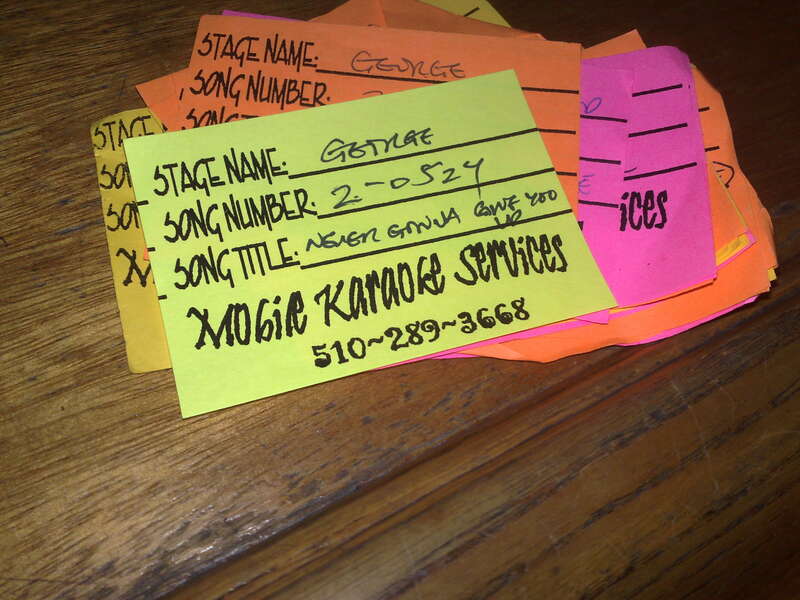 STAGE NAME: GEORGE
SONG NUMBER:
STAGE NAME: GEORGE
SONG NUMBER: 2-0524
SONG TITLE: NEVER GONNA GIVE YOU UP
Mobile Karaoke Services
510~289~3668
STAGE